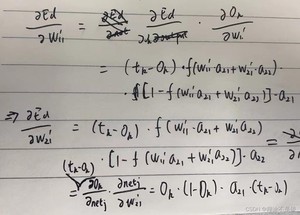 ∂Ed/∂w₁₁' = ∂Ed/∂output · ∂Ok/∂w₁'
= (tₖ-Oₖ) · f(w₁₁'·a₂₁+w₂₁'·a₂₂)·
· [1-f(w₁₁'a₂₁+w₂₁'a₂₂)]·a₂₁
⇒ ∂Ed/∂w₂₁' = (tₖ-Oₖ) · f(w₁₁'·a₂₁+w₂₁'a₂₂)
· [1-f(w₁₁'a₂₁+w₂₁'a₂₂)]·a₂₂
(tₖ-Oₖ)
= ∂Oₖ/∂netj · ∂netj/∂w₂₁' = Oₖ·(1-Oₖ)·a₂₁·(tₖ-Oₖ)